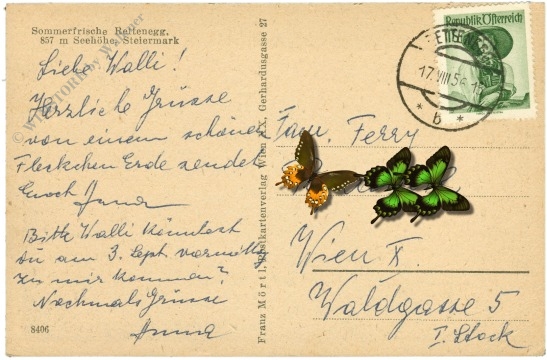 Sommerfrische Rettenegg.
857 m Seehöhe, Steiermark
Liebe Walli!
Herzliche Grüsse
von einem schönen
Fleckchen Erde sendet
Euch Anna
Bitte Walli könntest
Du am 3. Sept. vormittg
zu mir kommen?
Nochmals Grüsse
Anna
8406
Franz Mörtl, Postkartenverlag Wien XX, Gerhardusgasse 27
Republik Österreich
RETTENEGG
17.VIII.54
* b *
Fam. Ferry
Wien X.
Waldgasse 5
I. Stock